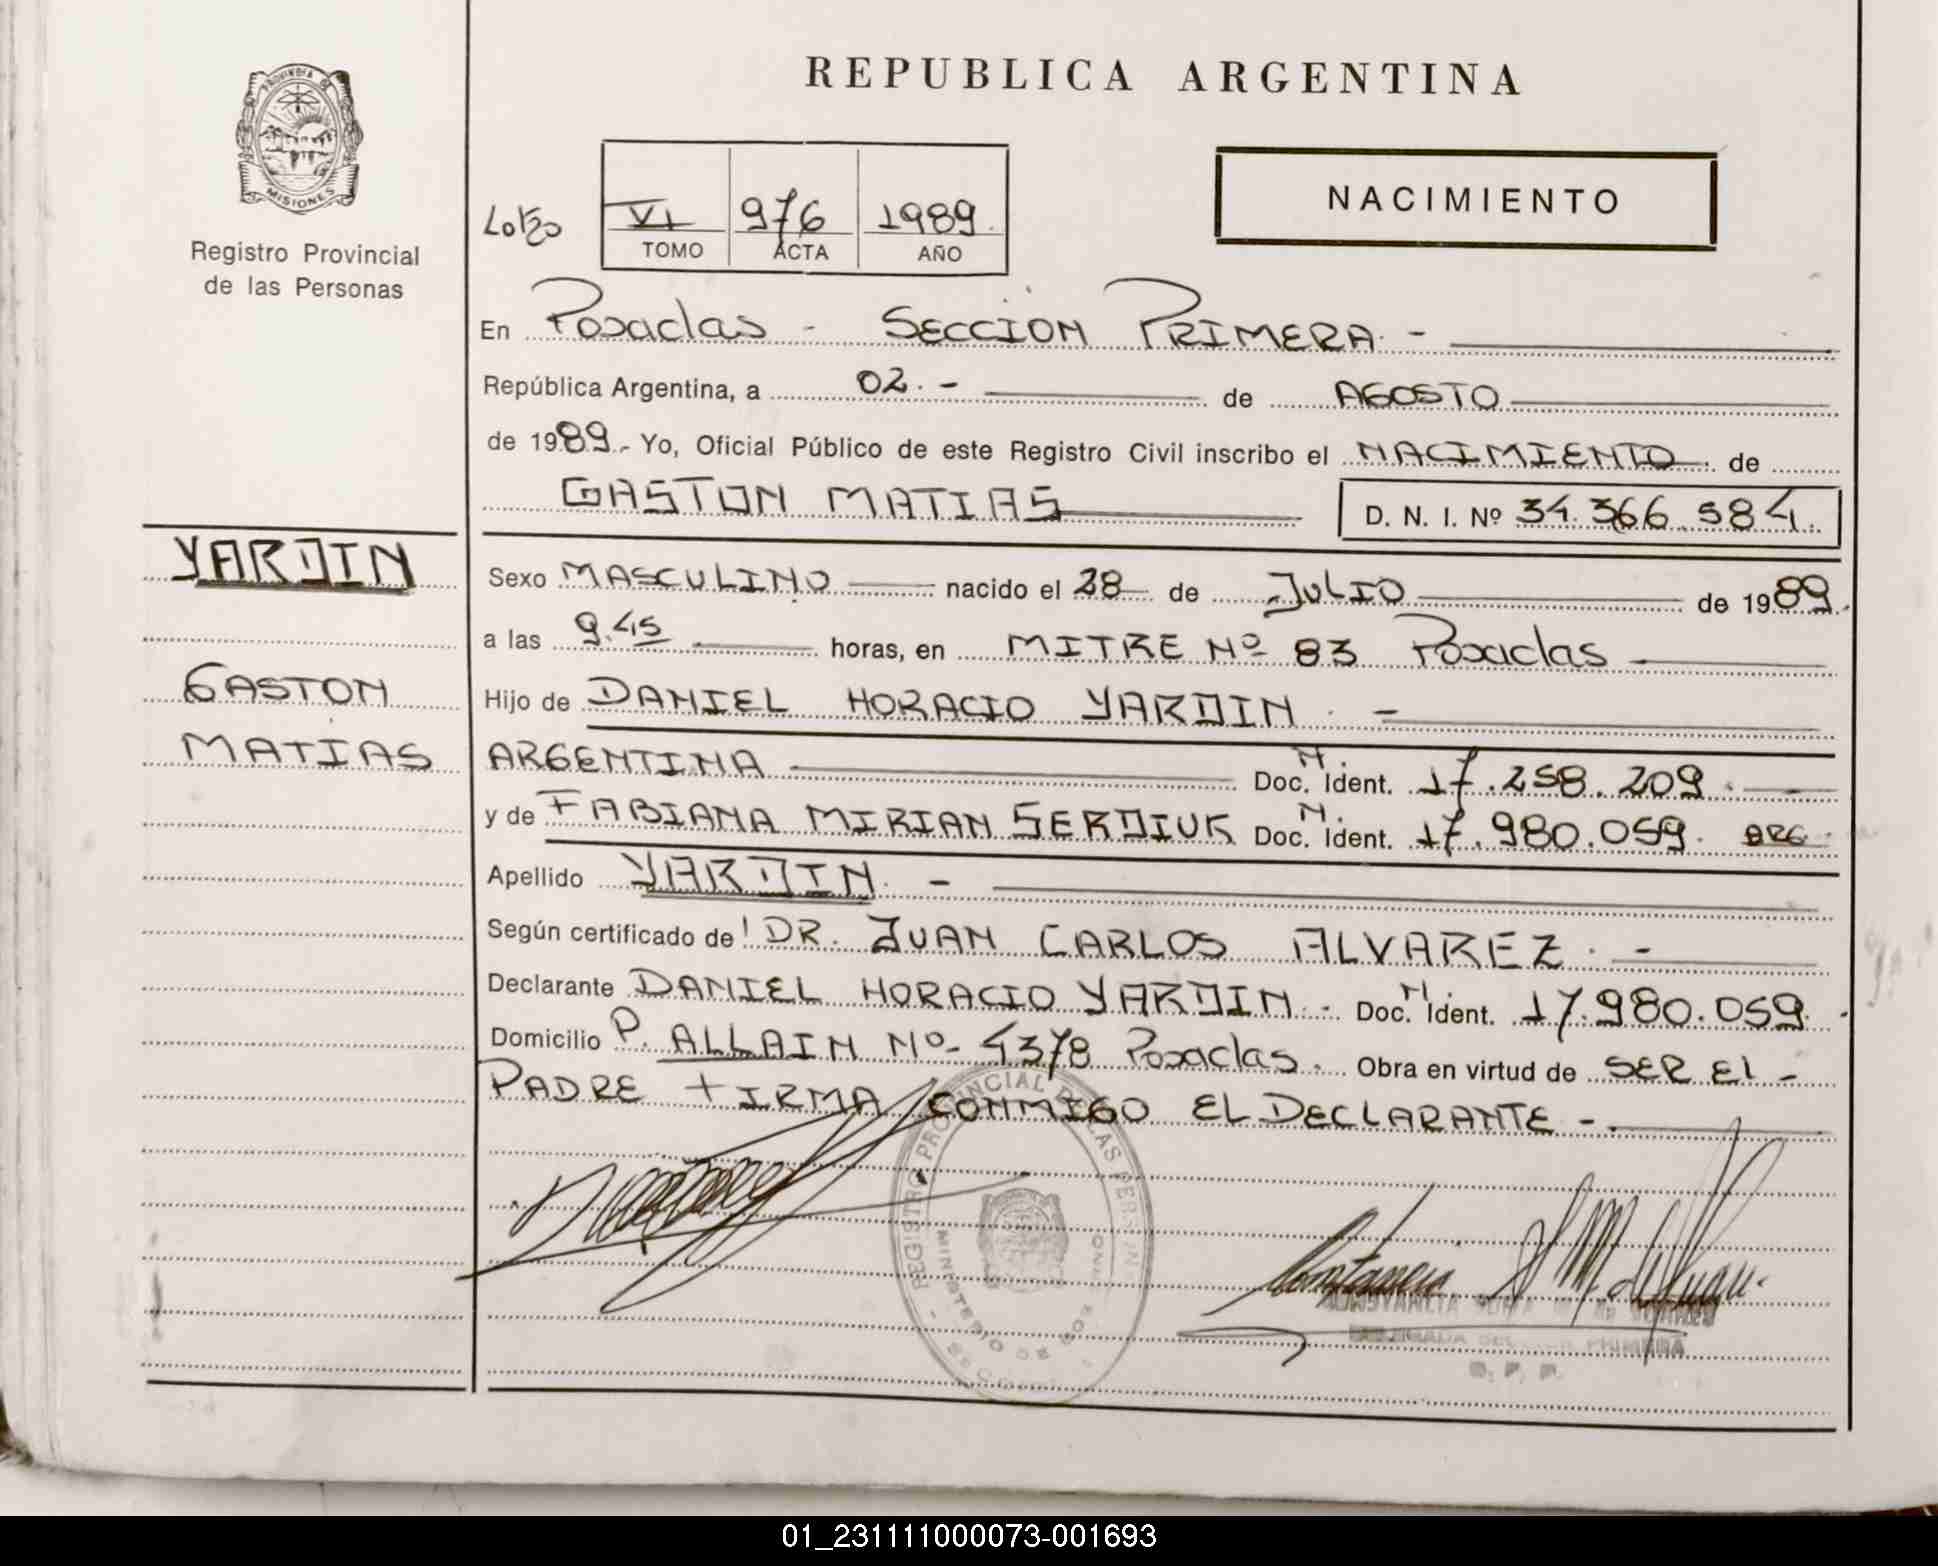 REPUBLICA ARGENTINA
PROVINCIA DE
MISIONES
Registro Provincial
de las Personas
NACIMIENTO
VI 976 1989
TOMO ACTA AÑO
En Posadas - SECCION PRIMERA. -
República Argentina, a 02. - de AGOSTO
de 1989.- Yo, Oficial Público de este Registro Civil inscribo el NACIMIENTO de
GASTON MATIAS
D. N. I. Nº 34.366.584.
YARDIN
GASTON
MATIAS
Sexo MASCULINO nacido el 28 de JULIO de 1989.
a las 9.45 horas, en MITRE Nº 83 Posadas
Hijo de DANIEL HORACIO YARDIN. -
ARGENTINA Doc. N. Ident. 17.258.209.
y de FABIANA MIRIAN SERDIUK Doc. N. Ident. 17.980.059. ARG.
Apellido YARDIN. -
Según certificado de DR. JUAN CARLOS ALVAREZ. -
Declarante DANIEL HORACIO YARDIN. Doc. N. Ident. 17.980.059.
Domicilio P. ALLAIN Nº 4378 Posadas. Obra en virtud de SER EL -
PADRE FIRMA CONMIGO EL DECLARANTE -
REGISTRO PROVINCIAL DE LAS PERSONAS
MINISTERIO DE GOBIERNO
01_231111000073-001693